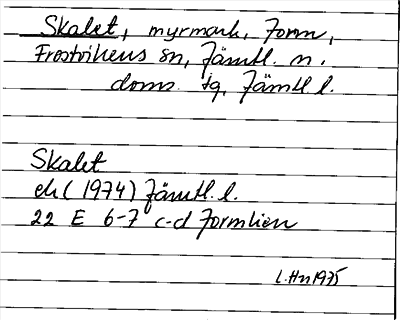 Skalet, myrmark, Form,
Frostvikens sn, Jämtl. n.
doms. tg, Jämtl l.
Skalet
ek (1974) Jämtl. l.
22 E 6-7 c-d Formlien
L.Hn 1975